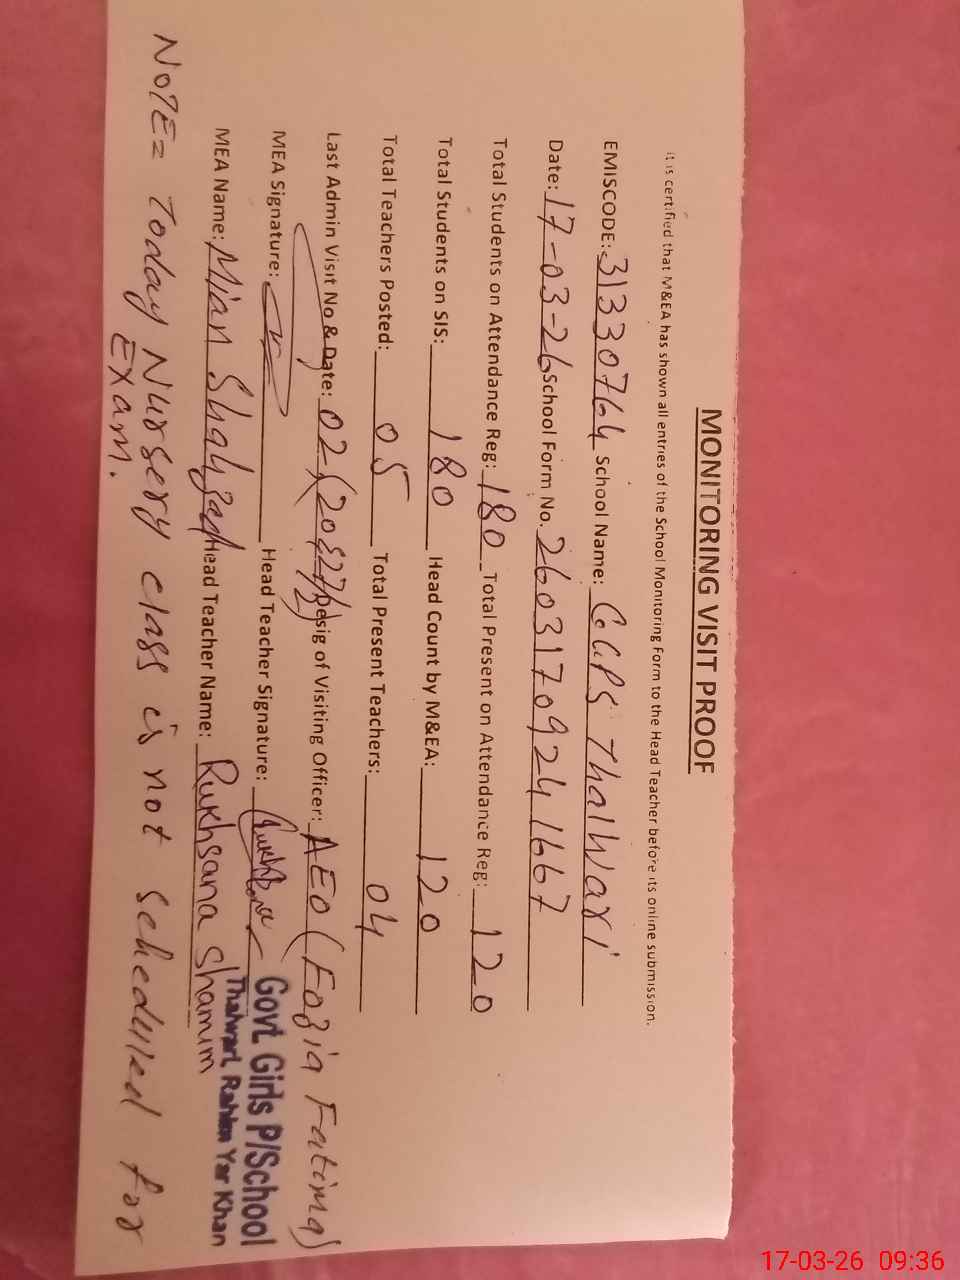 MONITORING VISIT PROOF
It is certified that M&EA has shown all entries of the School Monitoring Form to the Head Teacher before its online submission.
EMISCODE: 31330764 School Name: GGPS Thalwari
Date: 17-03-26 School Form No. 260317092411667
Total Students on Attendance Reg: 180 Total Present on Attendance Reg: 120
Total Students on SIS: 180 Head Count by M&EA: 120
Total Teachers Posted: 05 Total Present Teachers: 04
Last Admin Visit No & Date: 02- Desig of Visiting Officer: AEO (Fozia Fatima)
MEA Signature: Head Teacher Signature:
MEA Name: Mian Shahzad Head Teacher Name: Rukhsana Shamim
Govt. Girls P/School
Thalwari, Rahim Yar Khan
NOTE= Today Nursery class is not scheduled for
Exam.
17-03-26 09:36